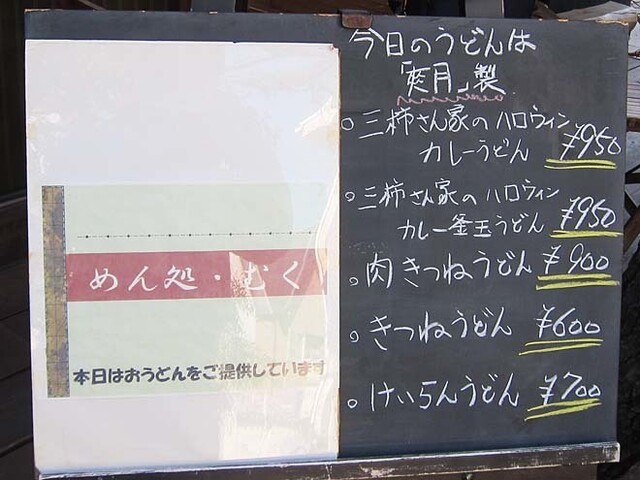 めん処・むく
本日はおうどんをご提供しています
今日のうどんは
「爽月」製
○三柿さん家のハロウィン
カレーうどん ¥950
○三柿さん家のハロウィン
カレー釜玉うどん ¥950
○肉きつねうどん ¥900
○きつねうどん ¥600
○けいらんうどん ¥700